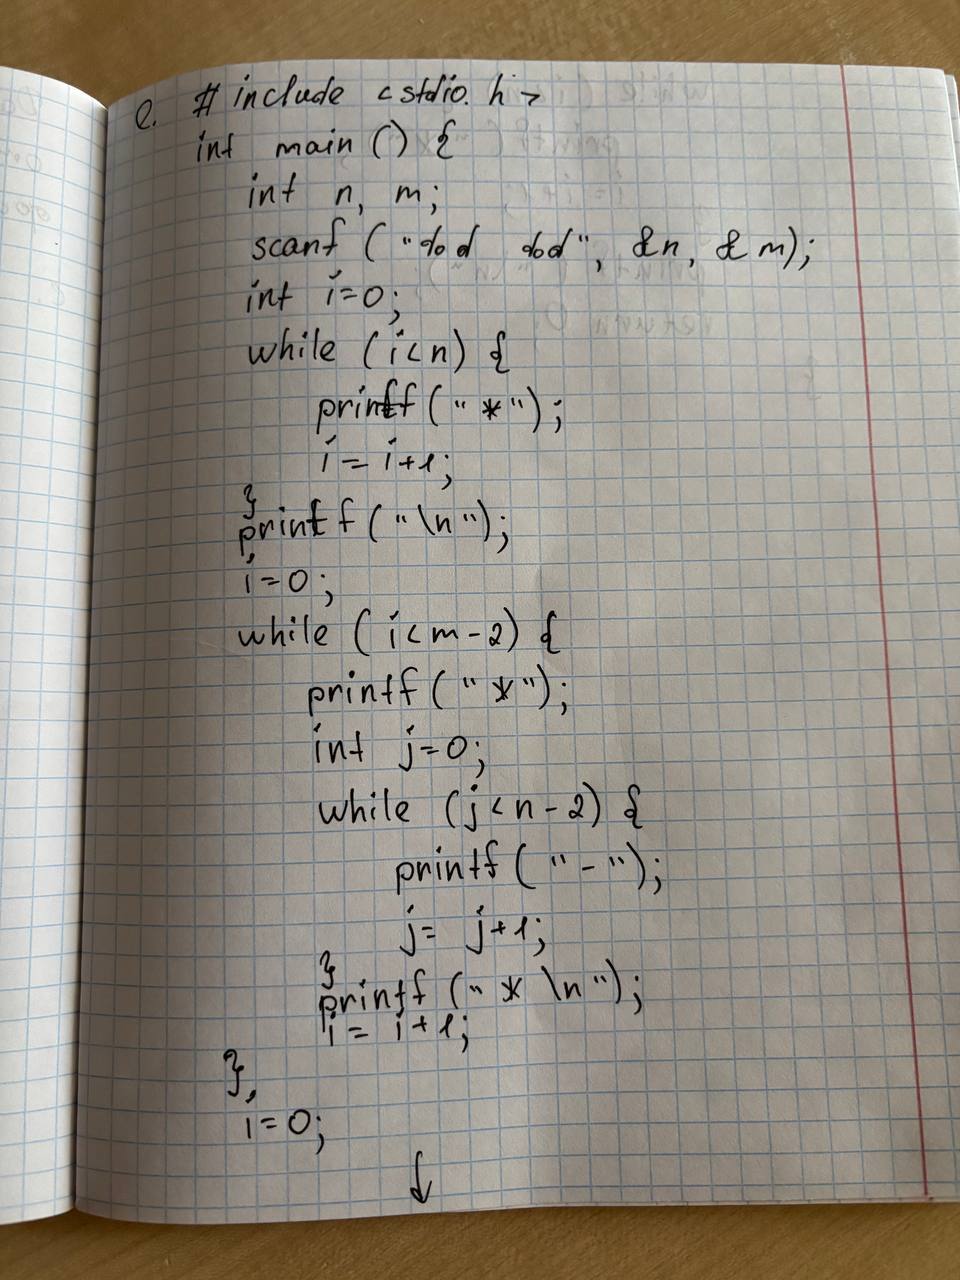 2. # include <stdio.h>
int main () {
int n, m;
scanf ("%d %d", &n, &m);
int i=0;
while (i<n) {
printf ("*");
i = i+1;
}
printf ("\n");
i=0;
while (i<m-2) {
printf ("*");
int j=0;
while (j<n-2) {
printf ("-");
j= j+1;
}
printf ("* \n");
i = i+1;
}
i=0;
↓